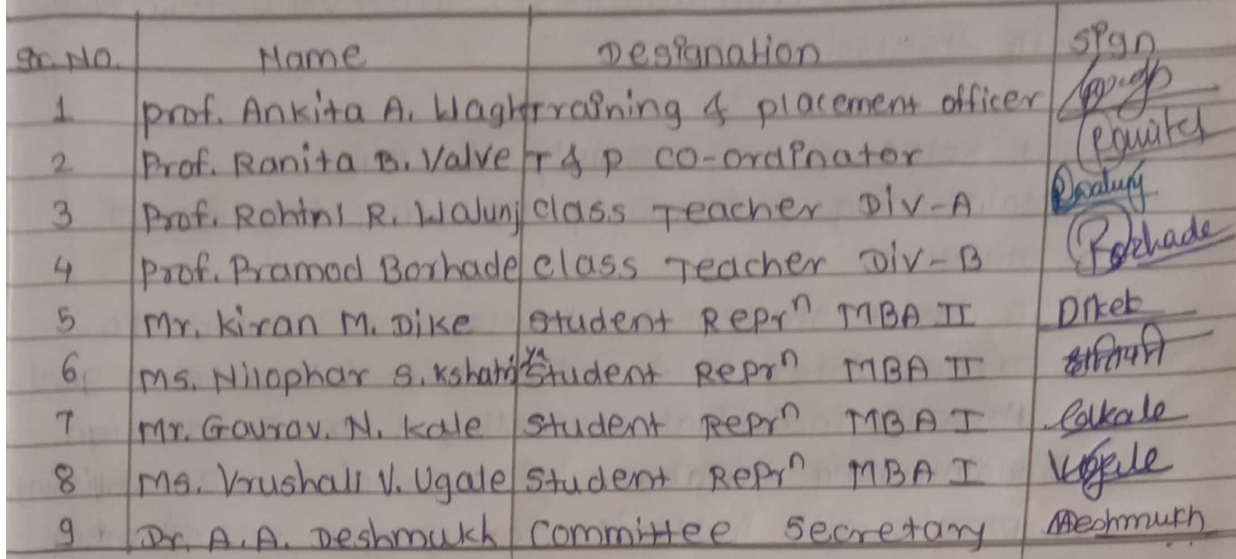 Sr. No. Name Designation Sign
1 Prof. Ankita A. Wagh Training & placement officer
2 Prof. Ranita B. Valve T & P CO-ordinator
3 Prof. Rohini R. Walunj class Teacher Div-A
4 Prof. Pramod Borhade class Teacher Div-B Borhade
5 Mr. Kiran M. Dike Student Reprⁿ MBA II
6 Ms. Nilophar S. Kshatriya Student Reprⁿ MBA II
7 Mr. Gaurav. N. Kale Student Reprⁿ MBA I
8 Ms. Vrushali V. Ugale Student Reprⁿ MBA I
9 Dr. A.A. Deshmukh Committee Secretary